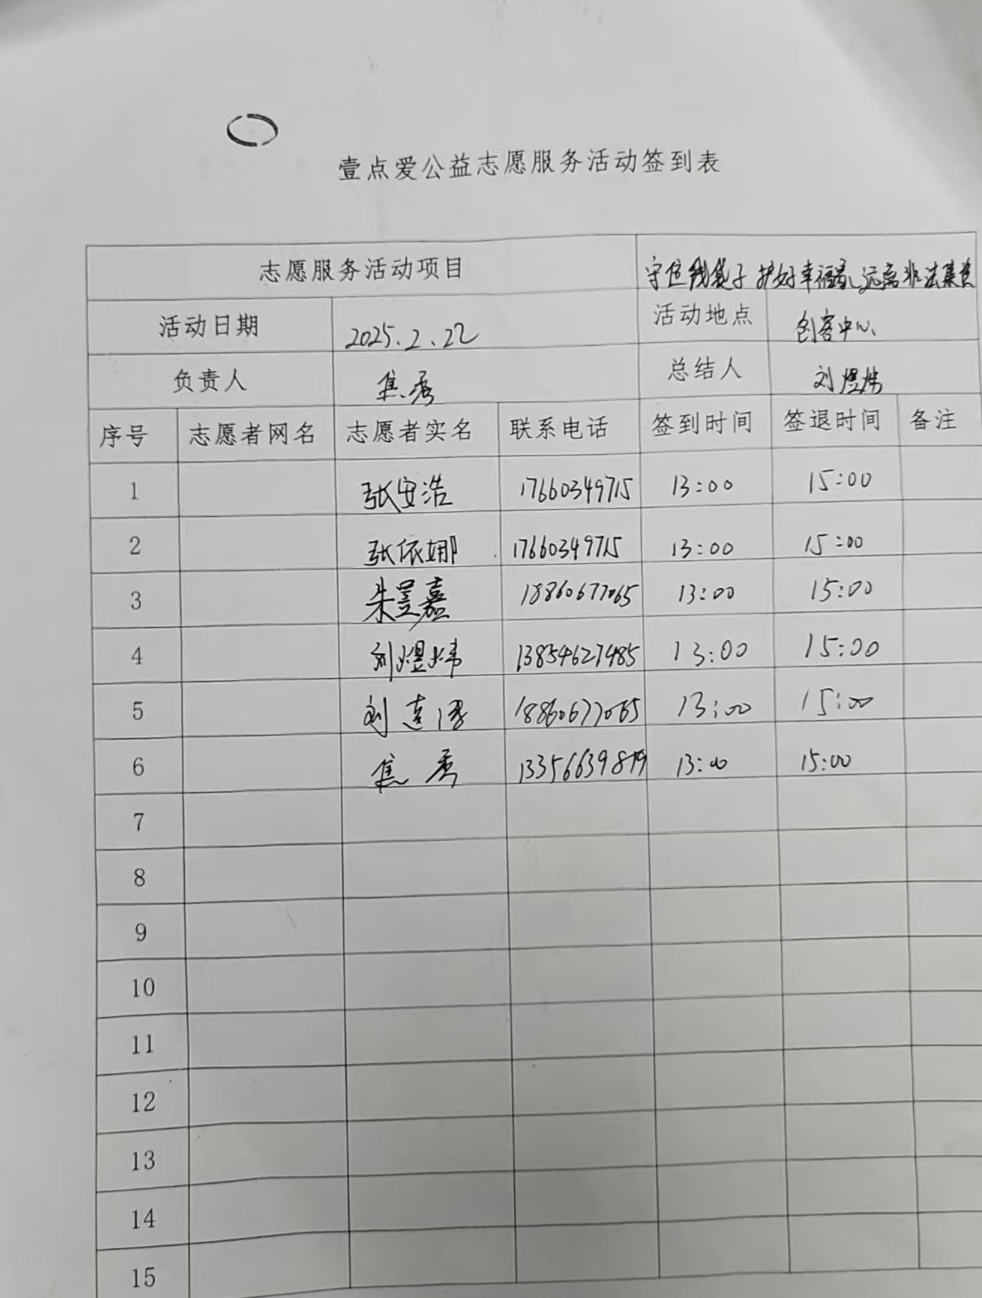 壹点爱公益志愿服务活动签到表
志愿服务活动项目 守住钱袋子 护好幸福家 远离非法集资
活动日期 2025.2.22 活动地点 创客中心
负责人 焦秀 总结人 刘煜炜
序号 志愿者网名 志愿者实名 联系电话 签到时间 签退时间 备注
1 张安浩 17660349715 13:00 15:00
2 张依娜 17660349715 13:00 15:00
3 朱昱嘉 18860677065 13:00 15:00
4 刘煜炜 13854627485 13:00 15:00
5 刘 18860677065 13:00 15:00
6 焦秀 13:00 15:00
7
8
9
10
11
12
13
14
15